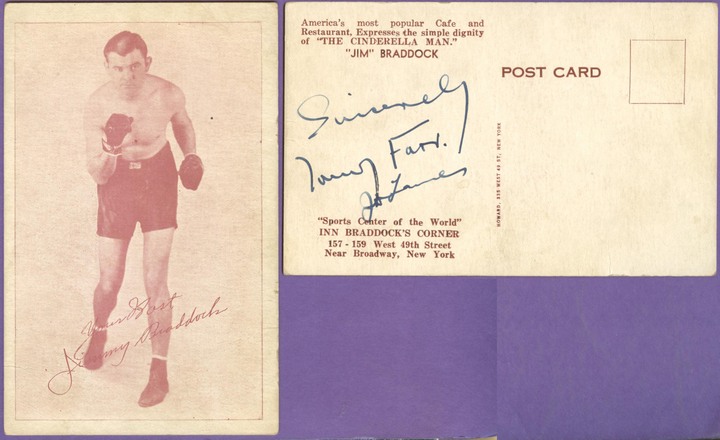 Yours Best
Jimmy Braddock
America's most popular Cafe and
Restaurant, Expresses the simple dignity
of "THE CINDERELLA MAN."
"JIM" BRADDOCK
Sincerely
Tommy Farr.
"Sports Center of the World"
INN BRADDOCK'S CORNER
157 - 159 West 49th Street
Near Broadway, New York
POST CARD